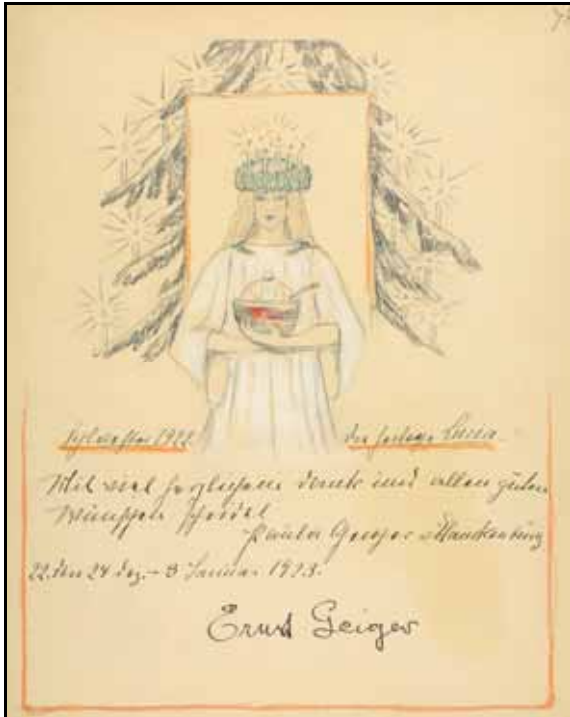 Sylvester 1922. die heilige Lucia.
Mit viel herzlichem Dank und allen guten
Wünschen scheidet
Paula
22. den 24 Dez. – 3 Januar 1923.
Ernst Geiger